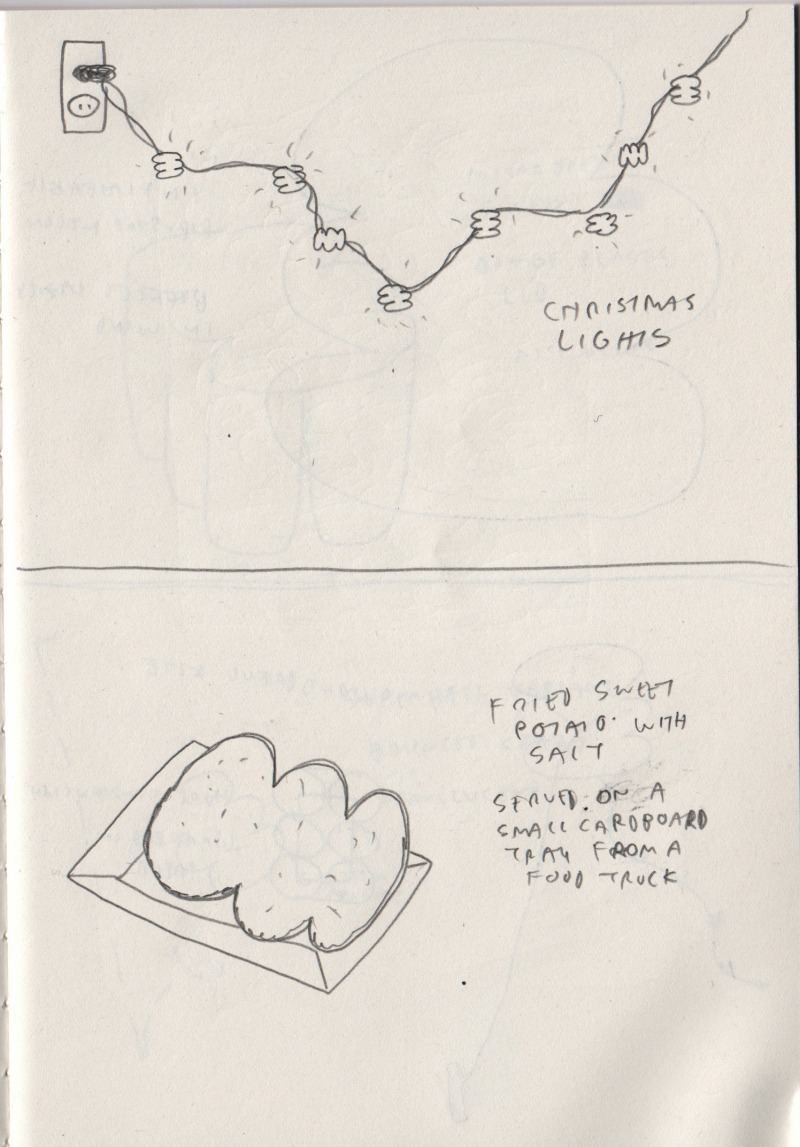 CHRISTMAS
LIGHTS
FRIED SWEET
POTATO WITH
SALT
SERVED ON A
SMALL CARDBOARD
TRAY FROM A
FOOD TRUCK